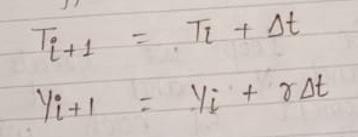 Ti+1 = Ti + Δt
Yi+1 = Yi + rΔt